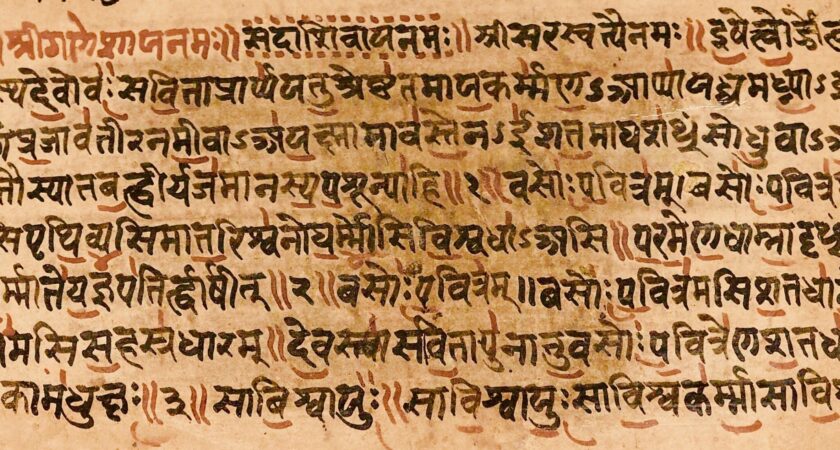 श्रीगणेशायनमः॥ सदाशिवायनमः॥ श्रीसरस्वत्यैनमः॥ इषेत्वो
देवोवः सविताप्रार्प्पयतुश्रेष्ठतमायकर्म्मणऽआप्यायध्वमघ्न्याऽ
प्रजावतीरनमीवाऽअयक्ष्मामावस्तेनऽईशतमाघशꣳसोध्रुवाऽअ
तौस्यातबह्वीर्यजमानस्यपशून्पाहि॥१॥ वसोः पवित्रम्। वसोः पवित्र
सिपृथिव्यसिमातरिश्वनोघर्म्मोसिविश्वधाऽअसि॥ परमेणधाम्नादृ
र्म्मातेयज्ञपतिर्ह्वार्षीत्॥२॥ वसोः पवित्रम्॥ वसोः पवित्रमसिशतधा
मसिसहस्रधारम्॥ देवस्त्वासवितापुनातुवसोः पवित्रेणशतधा
कामधुक्षः॥३॥ साविश्वायुः॥ साविश्वायुः साविश्वकर्म्मासावि